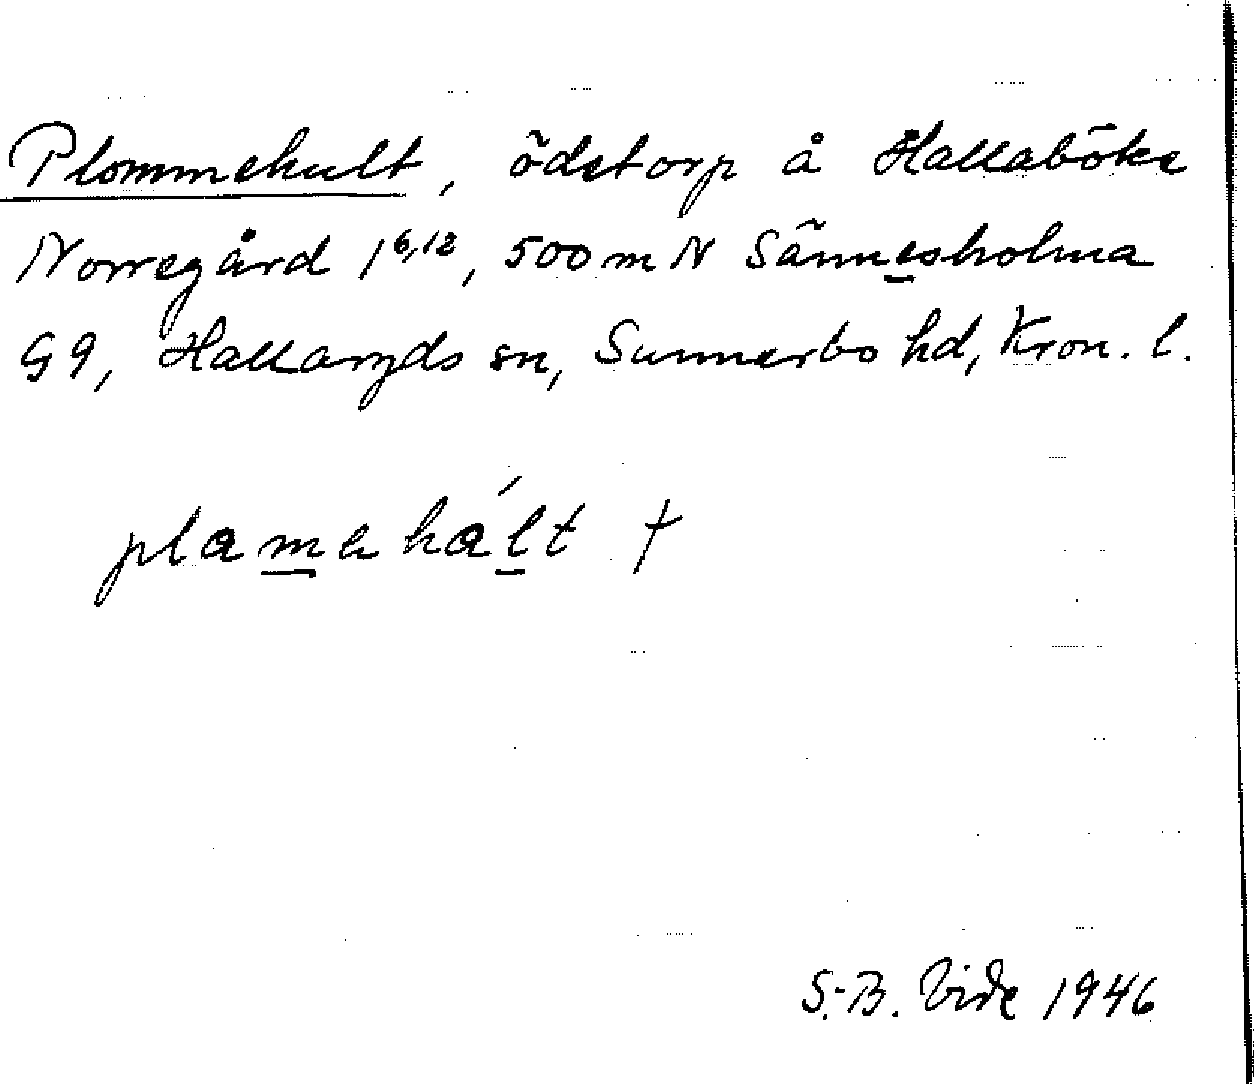 Plommekult, ödetorp å Hallaböke
Norregård 1⁶,¹², 500 m N Sännesholma
G9, Hallaryds sn, Sunnerbo hd, Kron. l.
plamekált †
S.-B. Vide 1946